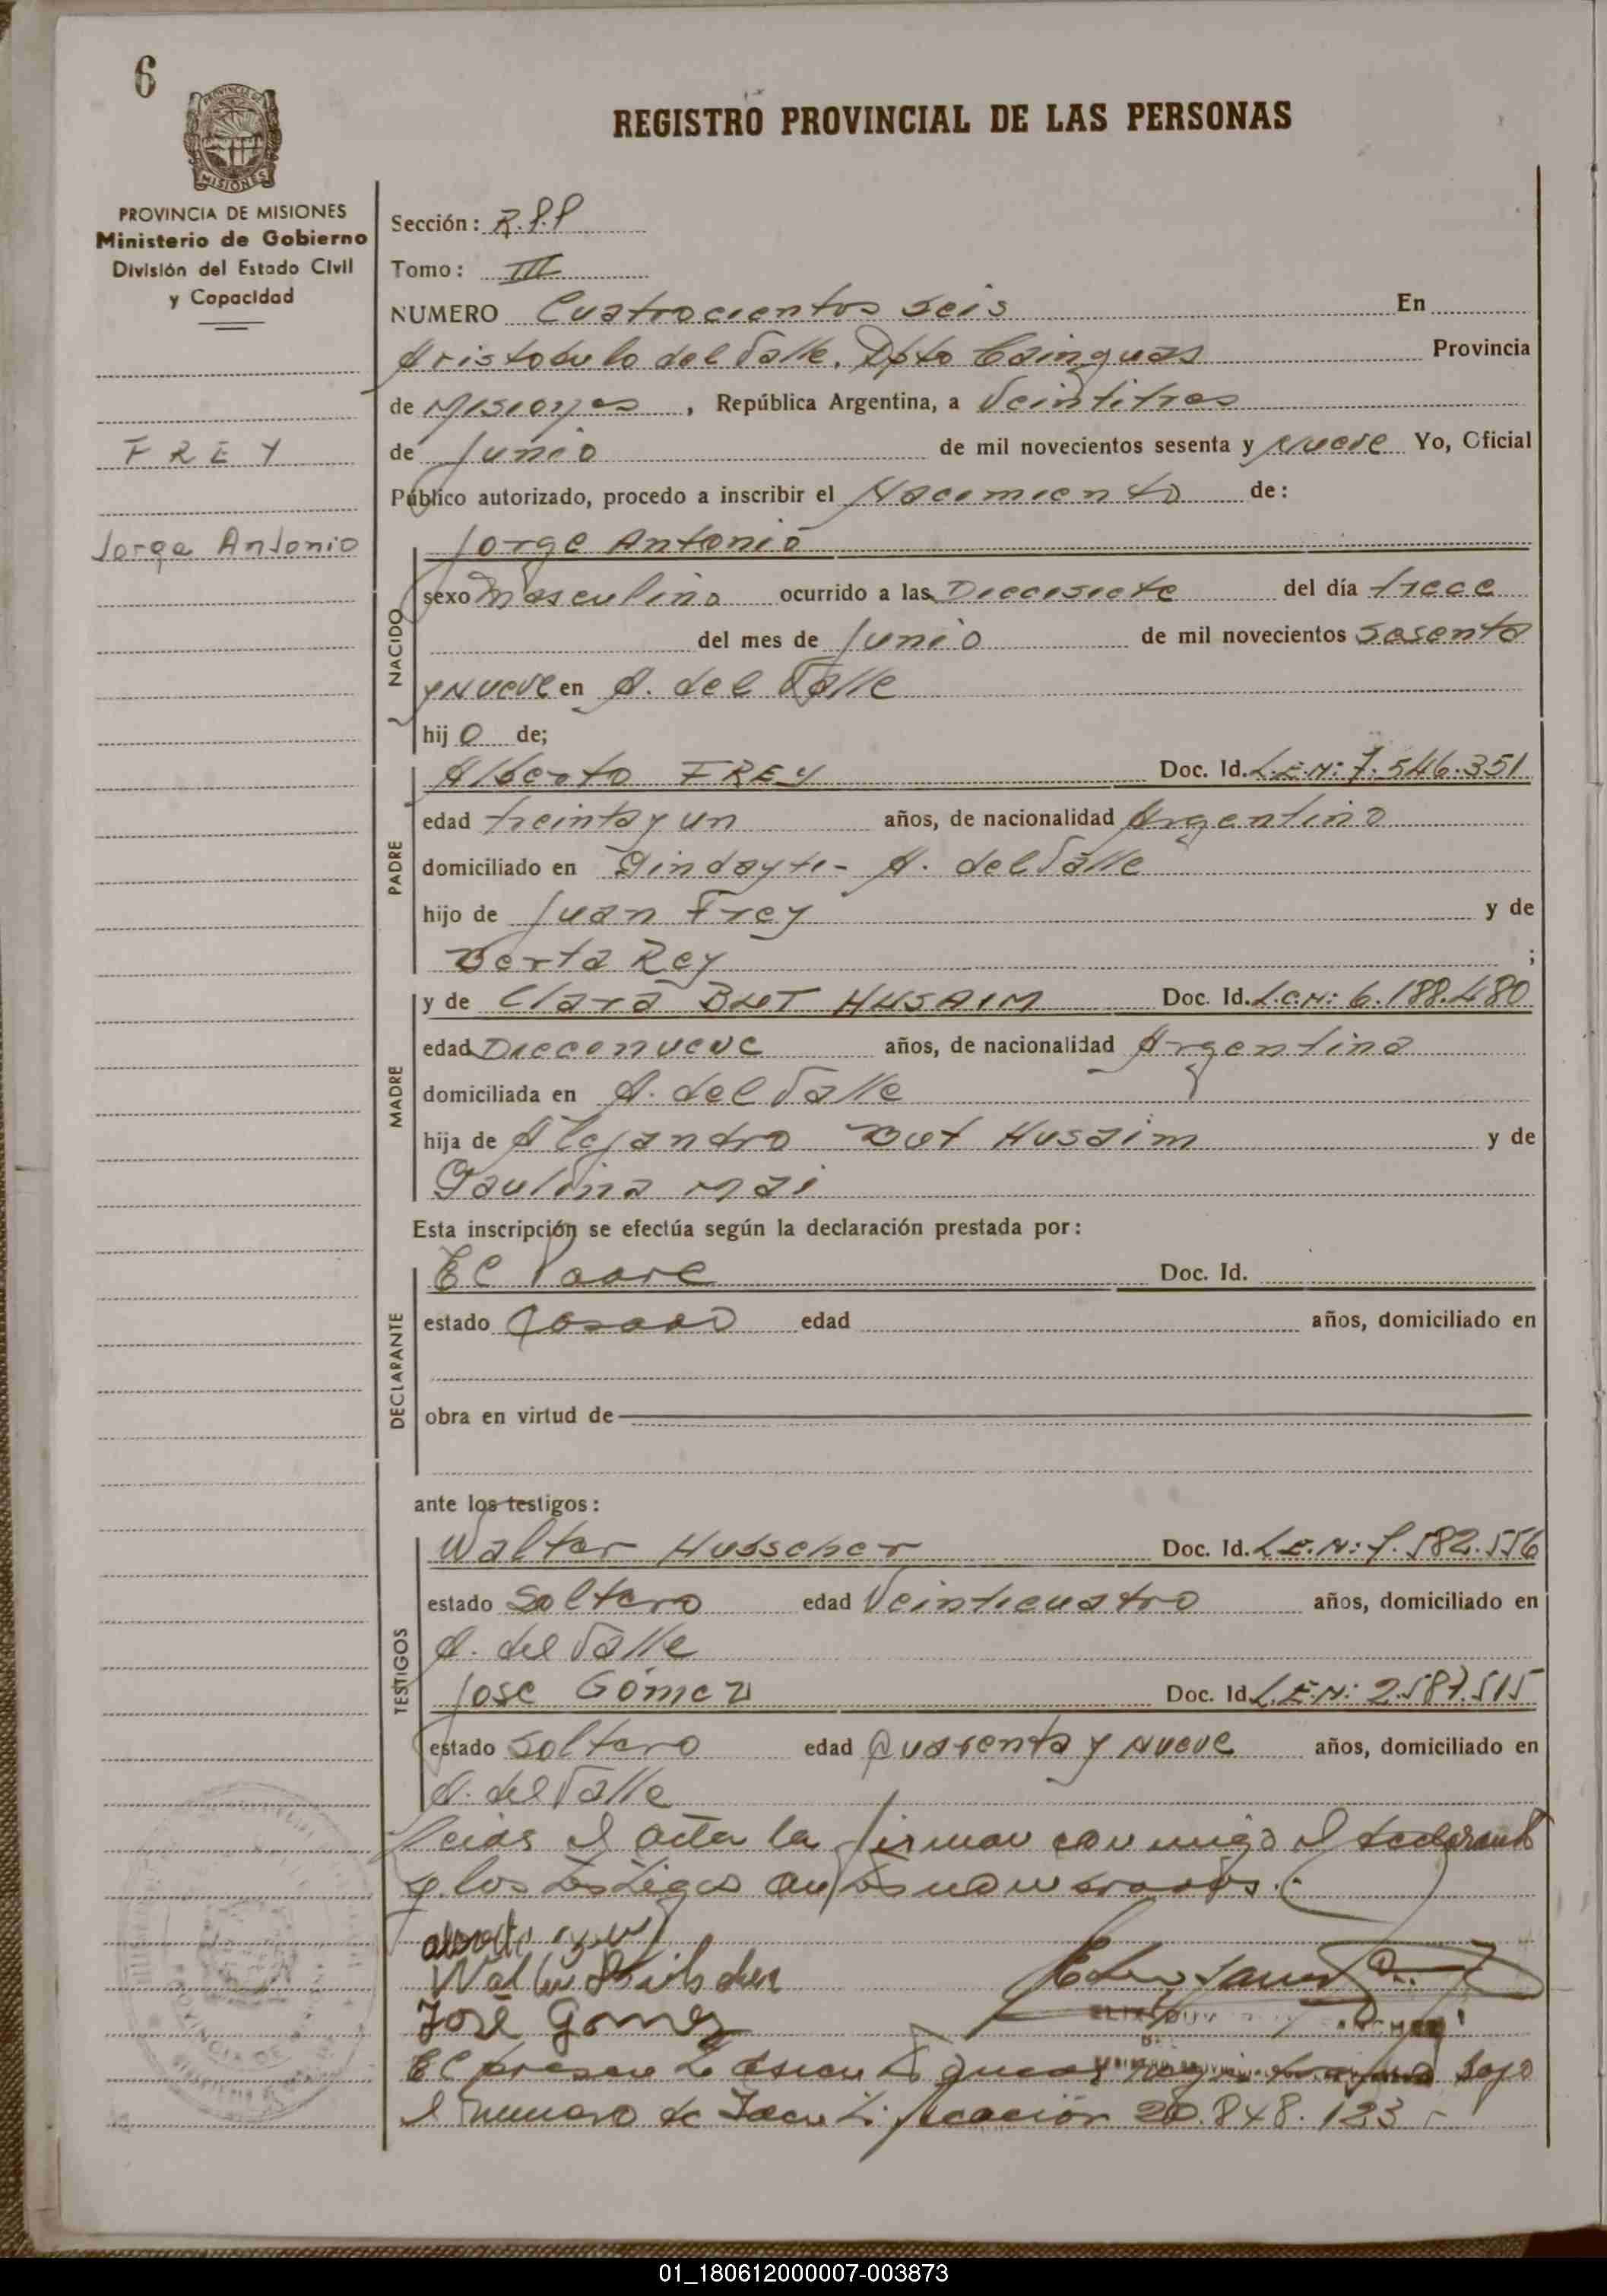 6
PROVINCIA DE MISIONES
Ministerio de Gobierno
División del Estado Civil
y Capacidad
FREY
Jorge Antonio
REGISTRO PROVINCIAL DE LAS PERSONAS
Sección: R.P.P
Tomo: III
NUMERO Cuatrocientos seis En
Aristobulo del Valle, Dpto Cainguas Provincia
de Misiones, República Argentina, a Veintitres
de Junio de mil novecientos sesenta y Nueve Yo, Oficial
Público autorizado, procedo a inscribir el Nacimiento de:
NACIDO
Jorge Antonio
sexo Masculino ocurrido a las Diecisiete del día trece
del mes de Junio de mil novecientos sesenta
y Nueve en A. del Valle
hijo de;
PADRE
Alberto FREY Doc. Id. L.E.N: 7.546.351
edad treinta y un años, de nacionalidad Argentino
domiciliado en A. del Valle
hijo de Juan Frey y de
Berta Rey ;
MADRE
y de Clara BUT HUSAIM Doc. Id. L.C.N: 6.188.480
edad Diecinueve años, de nacionalidad Argentina
domiciliada en A. del Valle
hija de Alejandro But Husaim y de
Paulina Mai
Esta inscripción se efectúa según la declaración prestada por:
DECLARANTE
El Padre Doc. Id.
estado Casado edad años, domiciliado en
obra en virtud de
ante los testigos:
TESTIGOS
Walter Doc. Id. L.E.N: 7.582.556
estado Soltero edad Veinticuatro años, domiciliado en
A. del Valle
Jose Gómez Doc. Id. L.E.N: 2.587.515
estado Soltero edad Cuarenta y Nueve años, domiciliado en
A. del Valle
Leida el acta la firman conmigo el declarante
y los testigos antes nombrados.
Alberto Frey
Walter
José Gomez
El presente asiento queda registrado bajo
el numero de Identificación 20.848.123
01_180612000007-003873